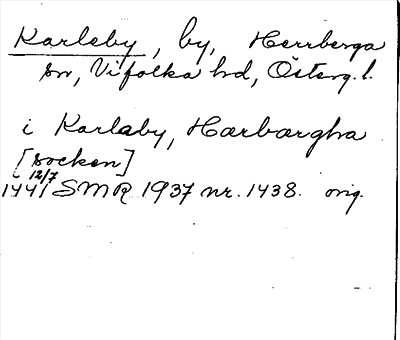 Karleby, by, Herrberga
sn, Vifolka hd, Österg. l.
i Karlaby, Hærbærgha
[socken]
12/7
1441 SMR 1937 nr. 1438. orig.